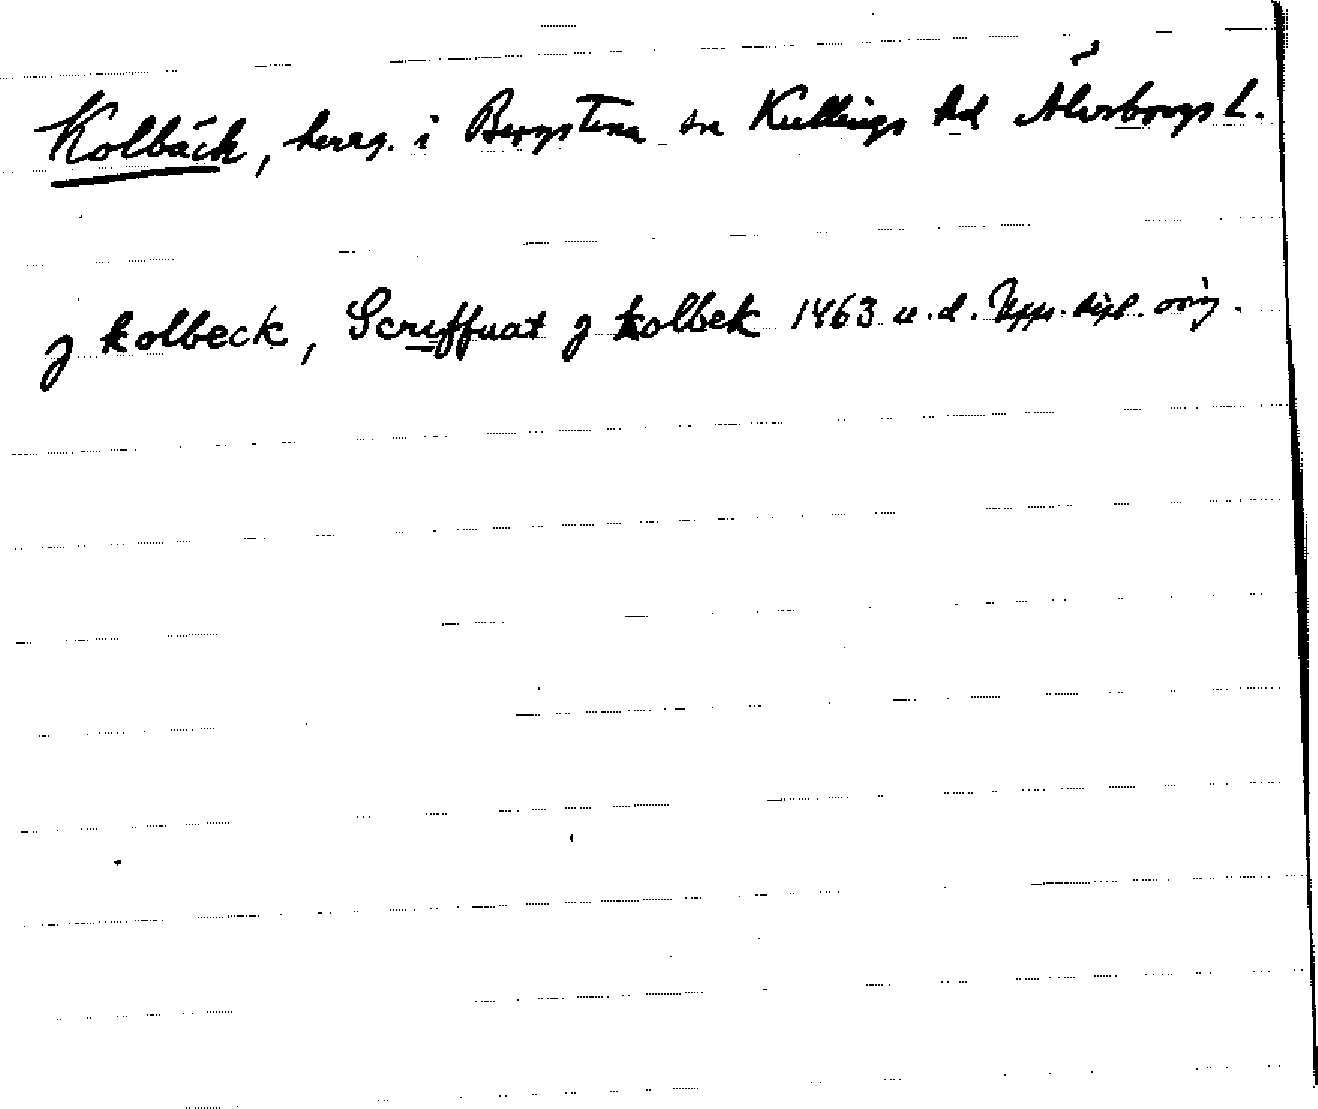 Kolbäck, herrg. i Bergstena sn Kullings hd Älvsborgs L.
J kolbeck, Screffuat J kolbek 1463 u.d. Upps. dipl. orig.